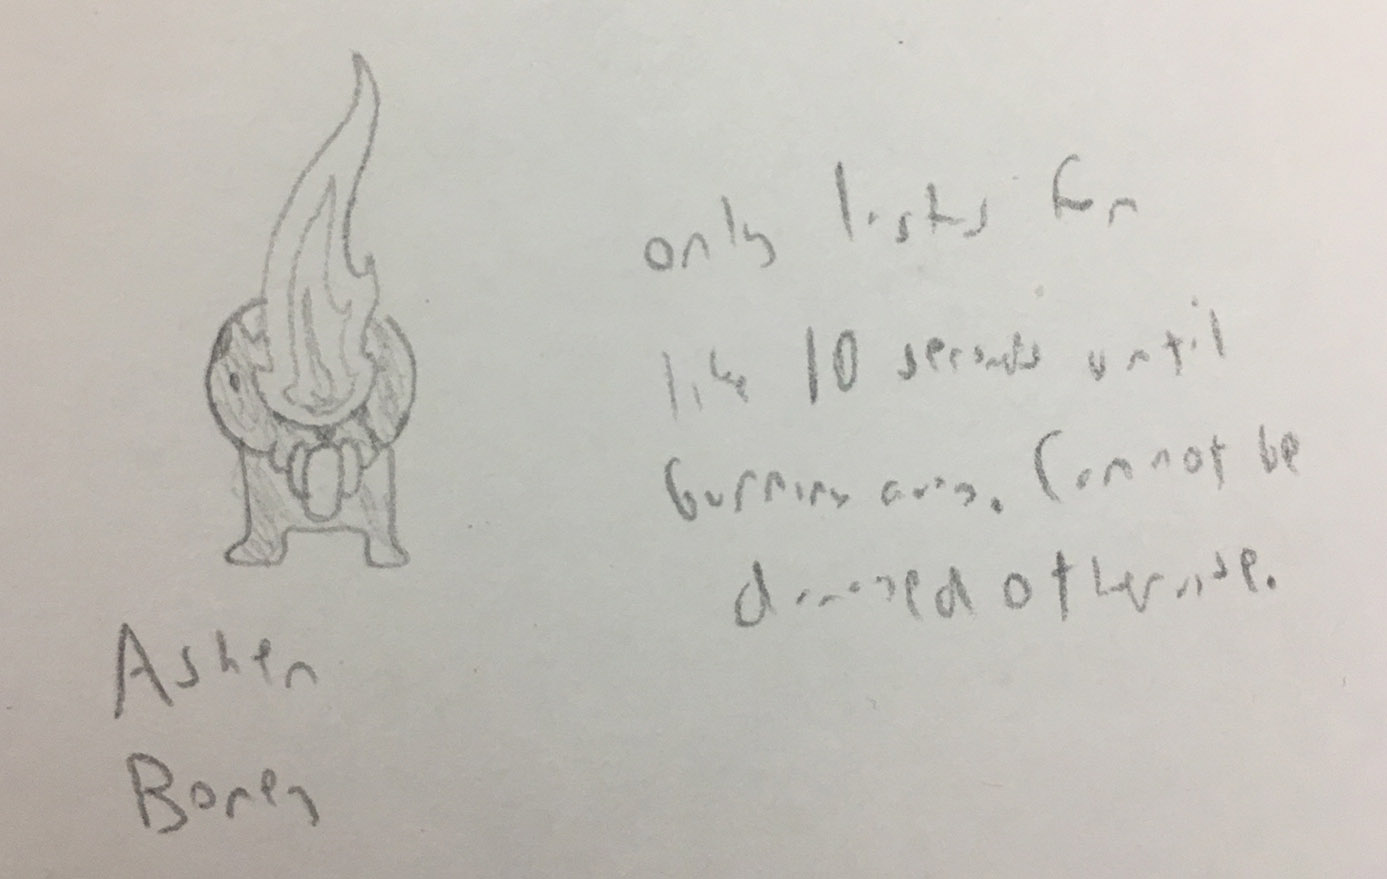 only lasts for
like 10 seconds until
burning away. Cannot be
damaged otherwise.
Ashen
Boney